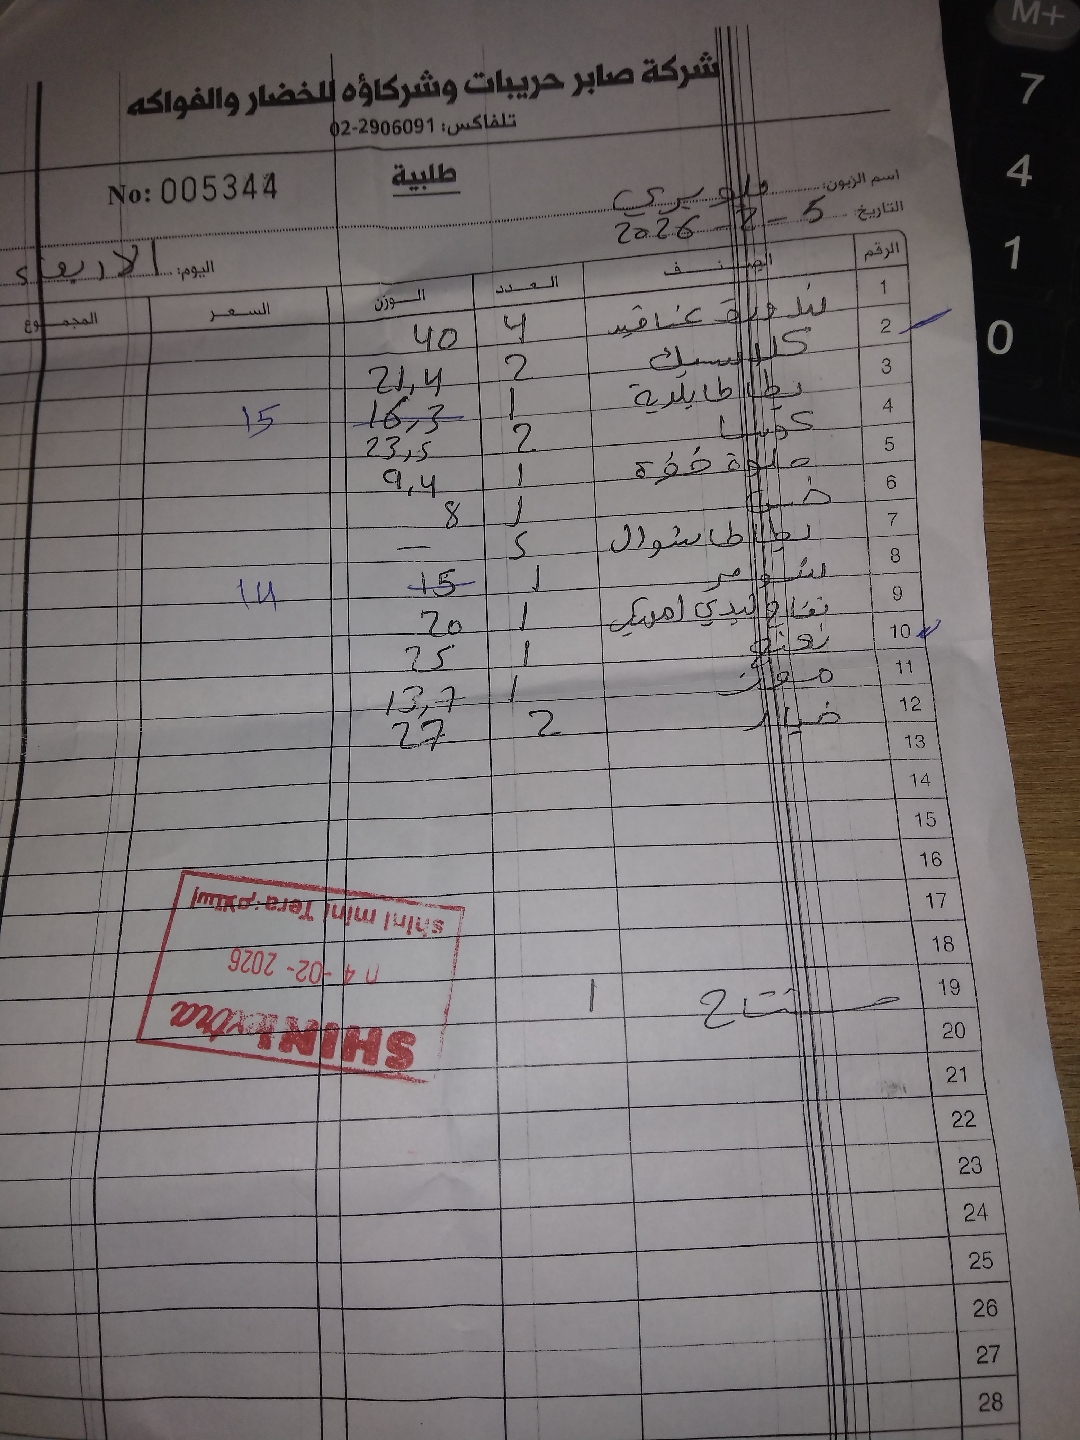 شركة صابر حريبات وشركاؤه للخضار والفواكه
تلفاكس: 02-2906091
طلبية
No: 005344
اسم الزبون:
التاريخ: 5-2-2026
اليوم: الاربعاء
الرقم الصنف العدد الوزن السعر المجموع
1 بندورة عناقيد 4 40
2 كلاسيك 2 21,4
3 بطاطا بلدية 1 16,3 15
4 كوسا 2 23,5
5 حلوة 1 9,4
6 خس 1 8
7 بطاطا شوال 5 —
8 شومر 1 15 14
9 تفاح ليدي 1 20
10 1 25
11 موز 1 13,7
12 خيار 2 27
13
14
15
16
17
18
19 مشتاح 1
20
21
22
23
24
25
26
27
28
SHINI extra
04-02-2026
shini mini Tera استلام
M+
7
4
1
0